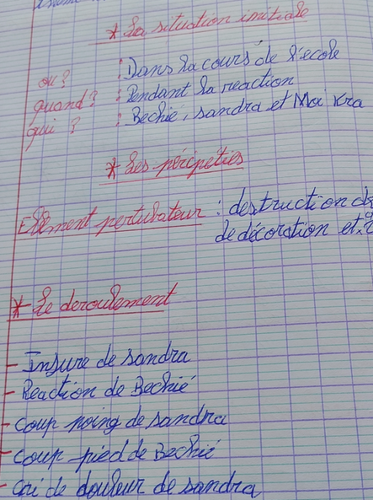 * La situation initiale
où? : Dans la cours de l'ecole
quand? : Pendant la reaction
qui? : Bechie, sandra et Moi Kra
* Les péripeties
Elément pertubateur : destruction de
de décoration et
* Le deroulement
- Insure de sandra
- Reaction de Bechié
- coup poing de sandra
- coup pied de Bechié
- cri de douleur de sandra